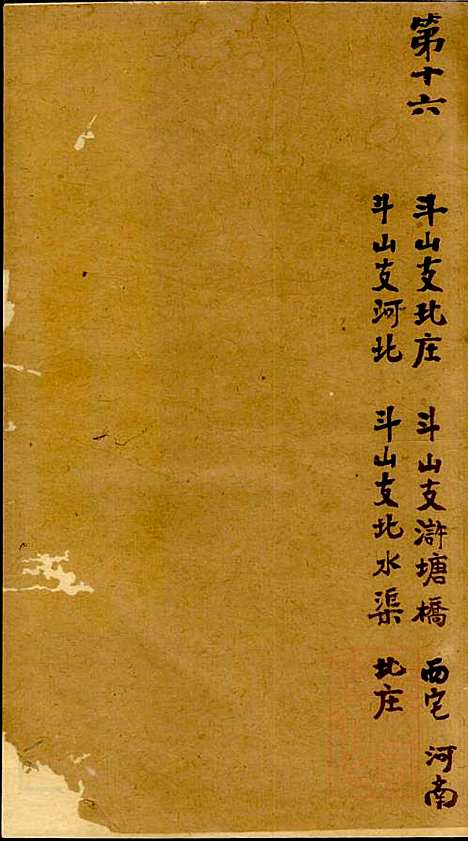 第十六
斗山支北庄 斗山支滸塘橋 西宅 河南
斗山支河北 斗山支北水渠 北庄